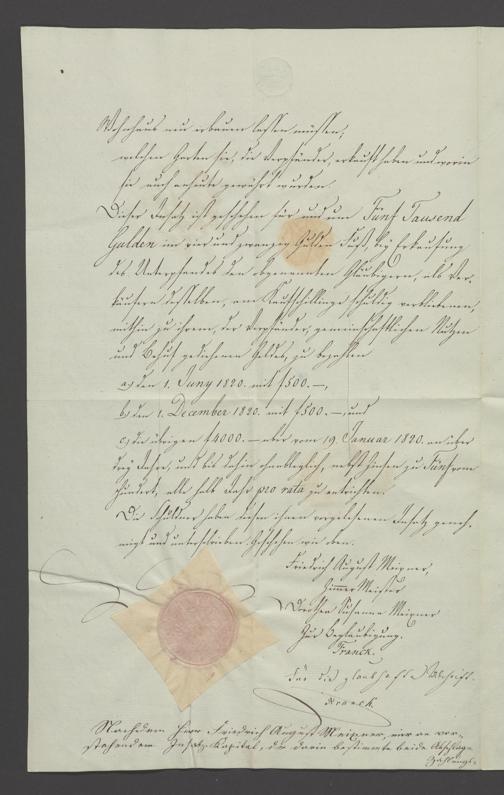 Wohnhaus neu erbauen lassen müssen,
welchen Garten sie, die Verpfänder, erkauft haben und worin
sie auch anheute gewährt wurden.
Dieser Insatz ist geschehen für und um Fünf Tausend
Gulden im vier und zwanzig Gulden Fuß bey Erkaufung
des Unterpfandes den obgenannten Gläubigern, als Ver-
käufern desselben, am Kaufschillinge schuldig verbliebenen,
mithin zu ihrem, der Verpfänder, gemeinschaftlichen Nutzen
und Behuf gediehenen Geldes, zu bezahlen
a) den 1. Juny 1820. mit f500.—,
b) den 1. December 1820. mit f500.—, und
c) die übrigen f4000.— aber vom 19. Januar 1820. an über
drey Jahre, und bis dahin ohnableglich, nebst Zinsen zu Fünf vom
Hundert, alle halb Jahr pro rata zu entrichten.
Die Schuldner haben diesen ihnen vorgelesenen Insatz geneh-
migt und unterschrieben. Geschehen wie oben.
Friedrich August Meixner,
Zimmer Meister
Dorothea Susanna Meixner
Zur Beglaubigung.
Franck.
Für die glaubhafte Abschrift.
Franck.
Nachdem Herr Friedrich August Meixner, an vor-
stehendem Insatz-Kapital, die darin bestimmte beide Abschlags-
Zahlungs-